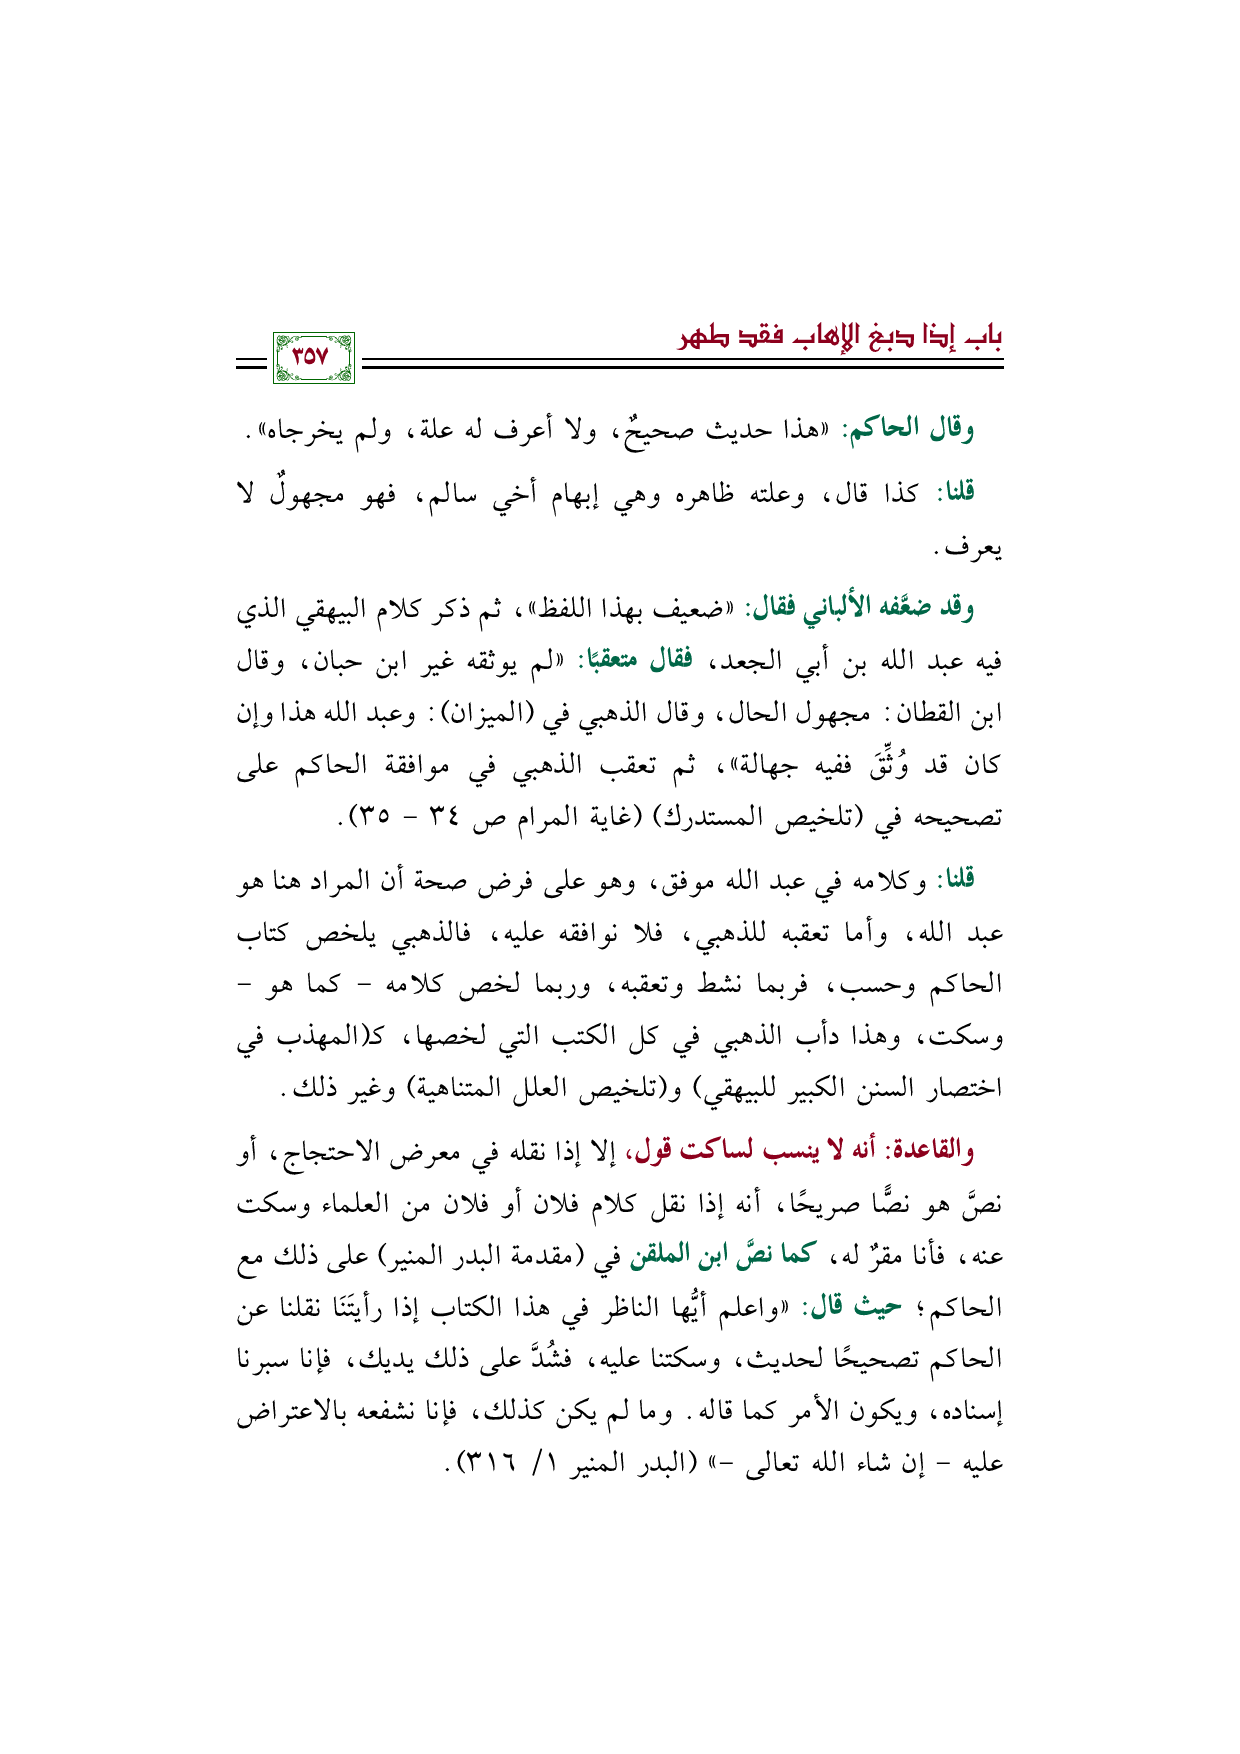 باب إذا دبغ الإهاب فقد طهر
٣٥٧
وقال الحاكم: «هذا حديث صحيحٌ، ولا أعرف له علة، ولم يخرجاه».
قلنا: كذا قال، وعلته ظاهره وهي إبهام أخي سالم، فهو مجهولٌ لا
يعرف.
وقد ضعَّفه الألباني فقال: «ضعيف بهذا اللفظ»، ثم ذكر كلام البيهقي الذي
فيه عبد الله بن أبي الجعد، فقال متعقبًا: «لم يوثقه غير ابن حبان، وقال
ابن القطان: مجهول الحال، وقال الذهبي في (الميزان): وعبد الله هذا وإن
كان قد وُثِّقَ ففيه جهالة»، ثم تعقب الذهبي في موافقة الحاكم على
تصحيحه في (تلخيص المستدرك) (غاية المرام ص ٣٤ - ٣٥).
قلنا: وكلامه في عبد الله موفق، وهو على فرض صحة أن المراد هنا هو
عبد الله، وأما تعقبه للذهبي، فلا نوافقه عليه، فالذهبي يلخص كتاب
الحاكم وحسب، فربما نشط وتعقبه، وربما لخص كلامه - كما هو -
وسكت، وهذا دأب الذهبي في كل الكتب التي لخصها، كـ(المهذب في
اختصار السنن الكبير للبيهقي) و(تلخيص العلل المتناهية) وغير ذلك.
والقاعدة: أنه لا ينسب لساكت قول، إلا إذا نقله في معرض الاحتجاج، أو
نصَّ هو نصًّا صريحًا، أنه إذا نقل كلام فلان أو فلان من العلماء وسكت
عنه، فأنا مقرٌ له، كما نصَّ ابن الملقن في (مقدمة البدر المنير) على ذلك مع
الحاكم؛ حيث قال: «واعلم أيُّها الناظر في هذا الكتاب إذا رأيتَنَا نقلنا عن
الحاكم تصحيحًا لحديث، وسكتنا عليه، فشُدَّ على ذلك يديك، فإنا سبرنا
إسناده، ويكون الأمر كما قاله. وما لم يكن كذلك، فإنا نشفعه بالاعتراض
عليه - إن شاء الله تعالى -» (البدر المنير ١/ ٣١٦).